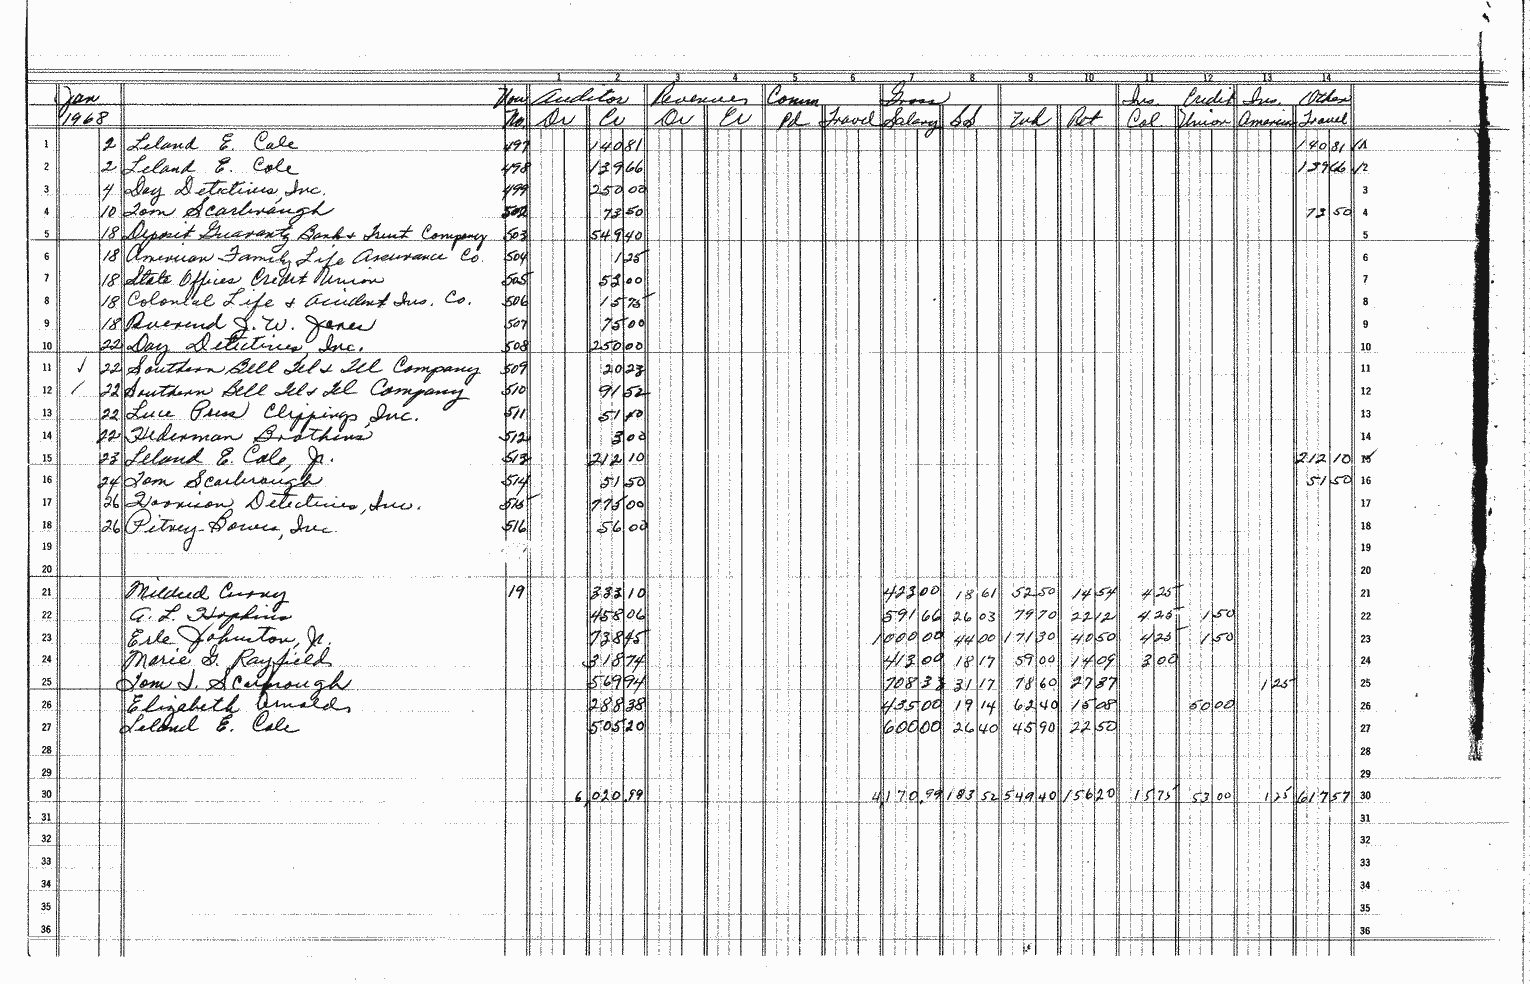 1 2 3 4 5 6 7 8 9 10 11 12 13 14
Jan Auditor Revenues Comm Gross Ins. Credit Ins. Other
1968 No. Dr Cr Dr Cr Pd Travel Salary SS Wh Ret Col. Union American Travel
1 2 Leland E. Cole 497 140 81 140 81 1
2 2 Leland E. Cole 498 139 66 139 66 2
3 4 Day Detectives, Inc. 499 250 00 3
4 10 Tom Scarbrough 502 73 50 73 50 4
5 18 Deposit Guaranty Bank & Trust Company 503 549 40 5
6 18 American Family Life Assurance Co. 504 1 25 6
7 18 State Offices Credit Union 505 53 00 7
8 18 Colonial Life & Accident Ins. Co. 506 15 75 8
9 18 Reverend J. W. Jones 507 75 00 9
10 22 Day Detectives, Inc. 508 250 00 10
11 22 Southern Bell Tel & Tel Company 509 20 23 11
12 22 Southern Bell Tel & Tel Company 510 91 52 12
13 22 Luce Press Clippings, Inc. 511 51 40 13
14 22 Hederman Brothers 512 3 00 14
15 23 Leland E. Cole, Jr. 513 212 10 212 10 15
16 24 Tom Scarbrough 514 51 50 51 50 16
17 26 Harrison Detectives, Inc. 515 775 00 17
18 26 Pitney-Bowes, Inc. 516 56 00 18
19 19
20 20
21 Mildred Curry 19 333 10 423 00 18 61 52 50 14 54 4 25 21
22 A. L. Hopkins 458 06 591 66 26 03 79 70 22 12 4 25 1 50 22
23 Erle Johnston, Jr. 738 45 1000 00 44 00 171 30 40 50 4 25 1 50 23
24 Marie G. Rayfield 318 74 413 00 18 17 59 00 14 09 3 00 24
25 Tom J. Scarbrough 569 94 708 33 31 17 78 60 27 37 1 25 25
26 Elizabeth Arnold 288 38 435 00 19 14 62 40 15 08 50 00 26
27 Leland E. Cole 505 20 600 00 26 40 45 90 22 50 27
28 28
29 29
30 6,020.99 4,170.99 183 52 549 40 156 20 15 75 53 00 1 25 617 57 30
31 31
32 32
33 33
34 34
35 35
36 36